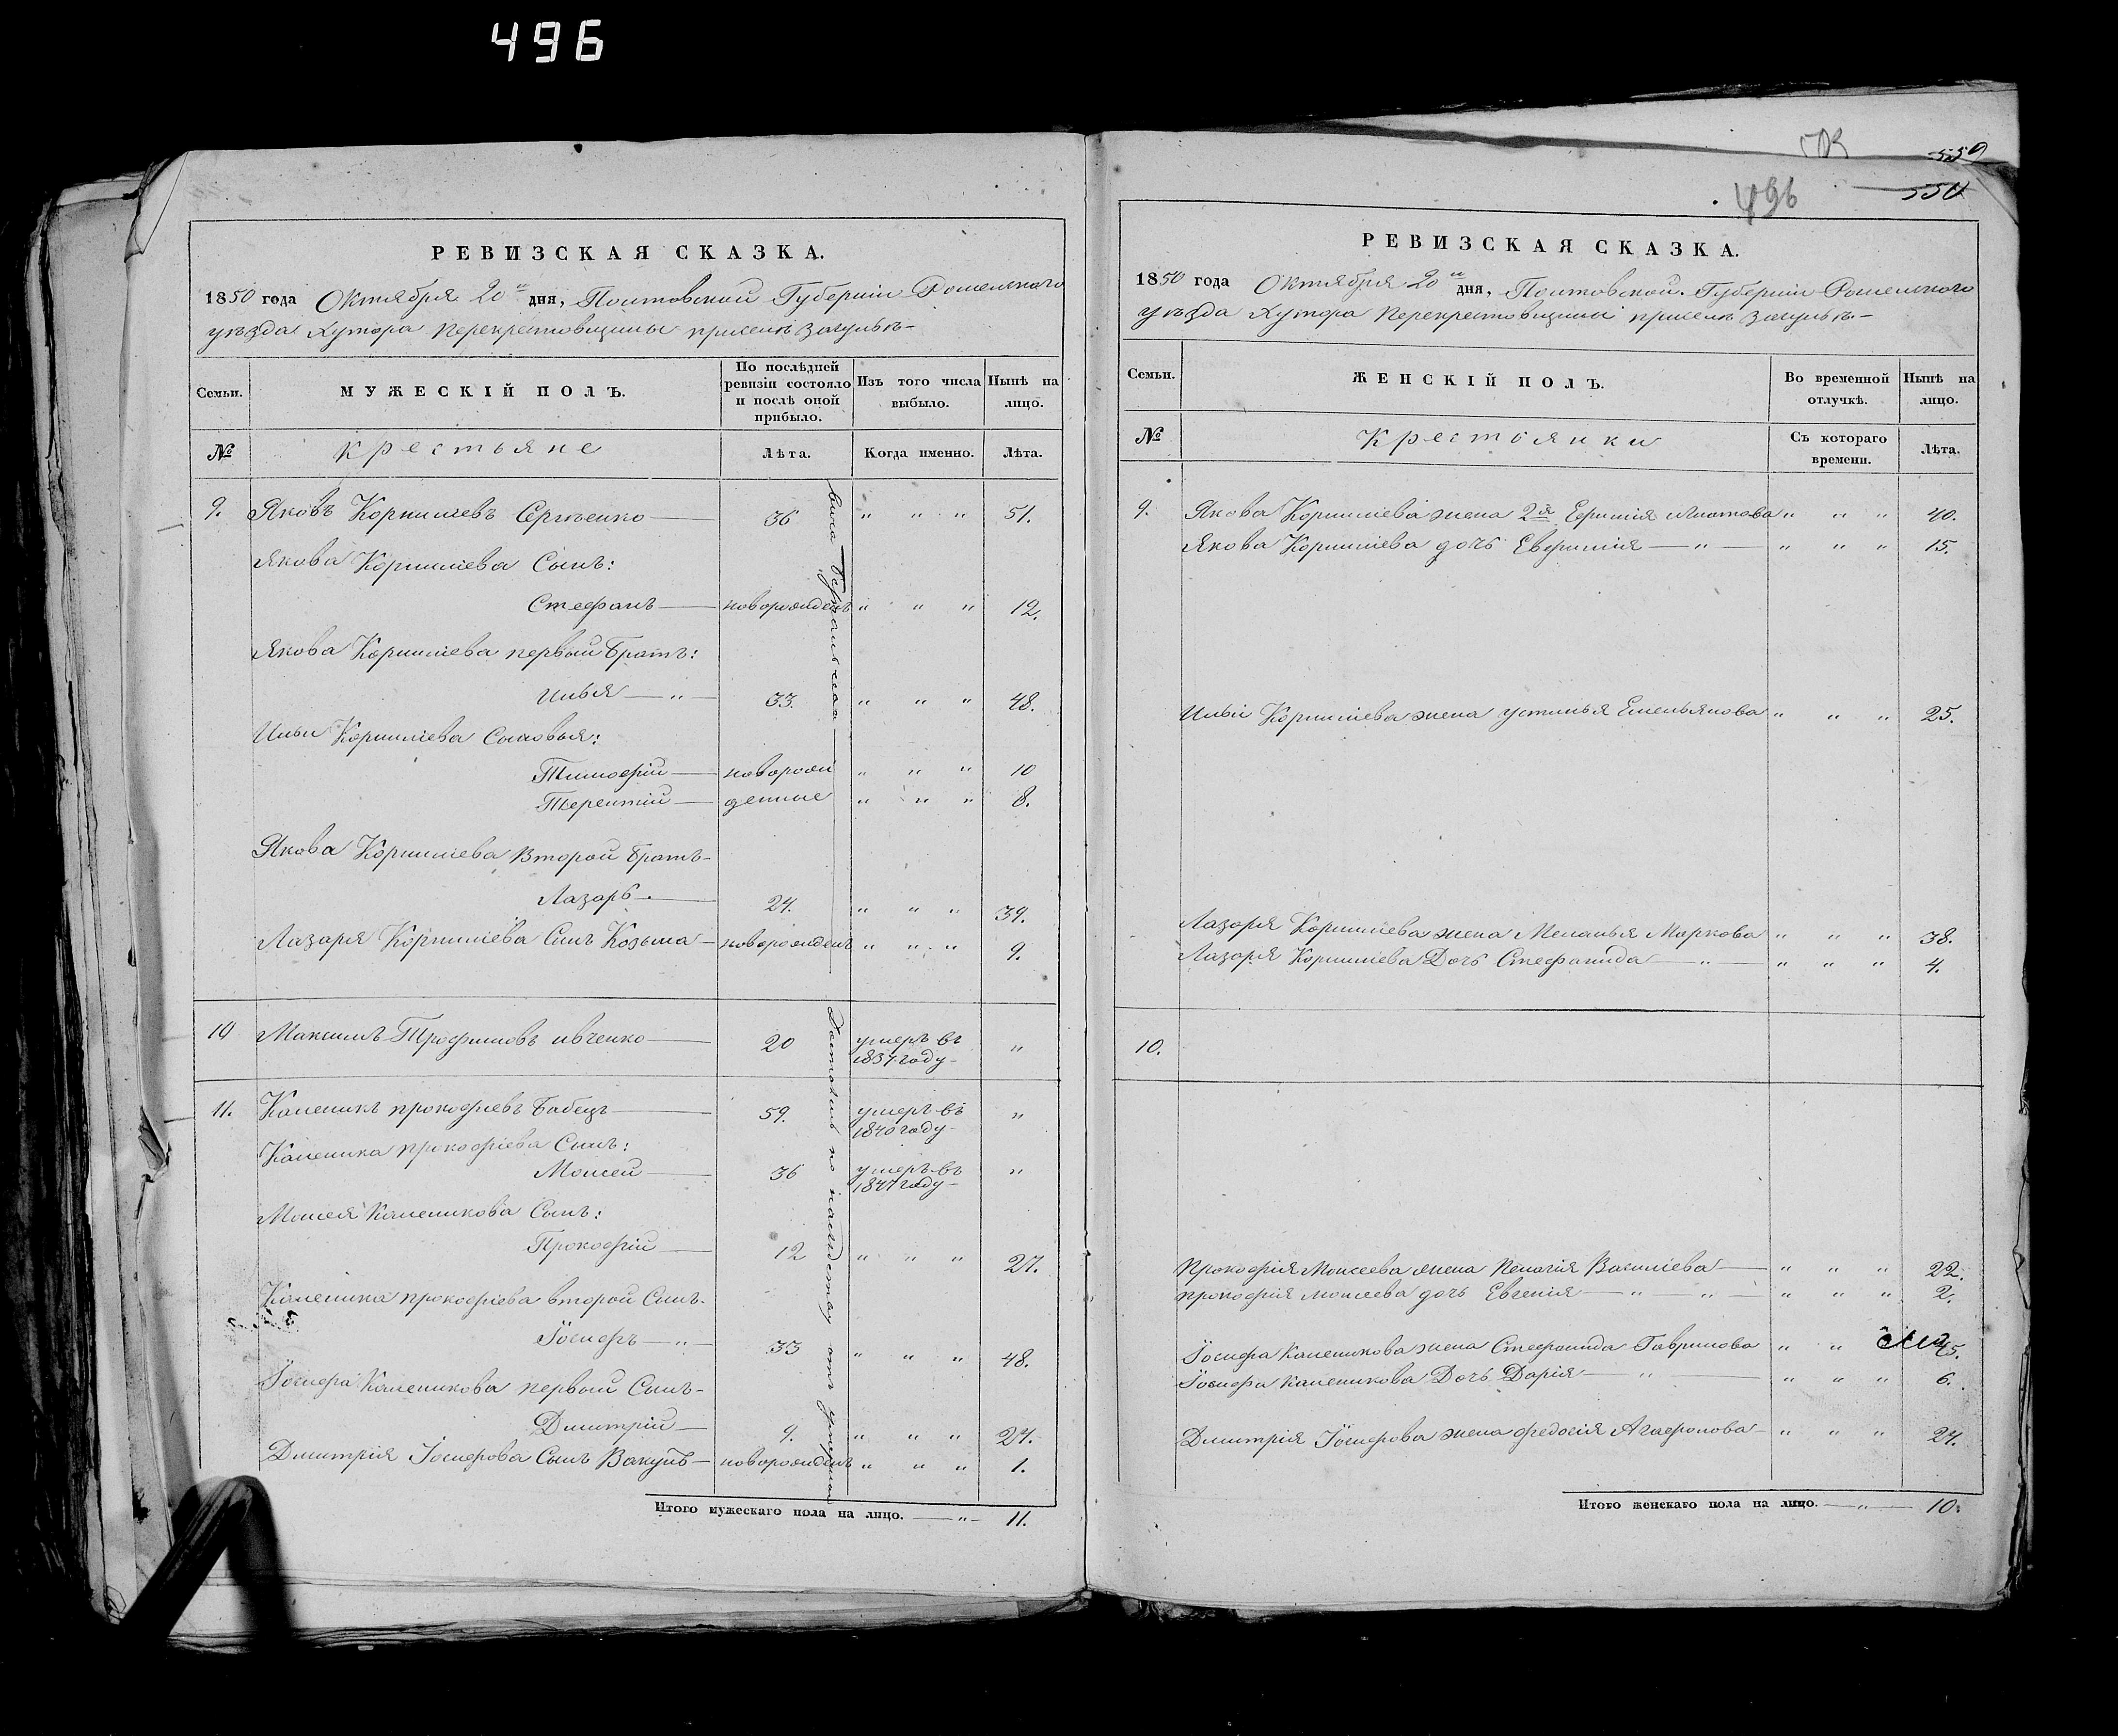 496
503
559
496
550
РЕВИЗСКАЯ СКАЗКА.
1850 года Октября 20 дня, Полтовской Губернии Роменского
уезда Хутора Перекрестовщины
Семьи.
МУЖЕСКІЙ ПОЛЪ.
По послѣдней ревизіи состояло и послѣ оной прибыло.
Изъ того числа выбыло.
Нынѣ на лицо.
№
крестьяне
Лѣта.
Когда именно.
Лѣта.
9. Яковъ Корнилиевъ Сергѣенко 36 " " " 51.
Якова Корнилиева Сынъ:
Стефанъ новорожденъ " " " 12.
Якова Корнилиева первый братъ:
Илья " 33. " " " 48.
Ильи Корнилиева Сыновья:
Тимофій новорож " " " 10
Терентій денные " " " 8.
Якова Корнилиева Второй братъ
Лазарь 24. " " " 39.
Лазаря Корнилиева Сынъ Козьма новорожденъ " " " 9.
10 Максимъ Трофимовъ ивченко 20 умеръ въ "
1837 году
11. Каленикъ прокофиевъ Бабецъ 59. умеръ въ "
1840 году
Каленика прокофіева Сынъ:
Моисей 36 умеръ въ "
1847 году
Моисея Каленикова Сынъ:
Прокофій 12 " " " 27.
Каленика прокофіева второй Сынъ
Іосифъ " 33 " " " 48.
Іосифа Каленикова первый Сынъ
Дмитрій 9. " " " 24.
Дмитрія Іосифова Сынъ Вакулъ новорожденъ " " " 1.
Достались по наслѣдству отъ
Итого мужескаго пола на лицо. " 11.
РЕВИЗСКАЯ СКАЗКА.
1850 года Октября 20 дня, Полтовской Губернии Роменского
уезда Хутора Перекрестовщины
Семьи.
ЖЕНСКІЙ ПОЛЪ.
Во временной отлучкѣ.
Нынѣ на лицо.
№
Крестьянки
Съ котораго времени.
Лѣта.
9. Якова Корнилиева жена 2я " " " 40.
Якова Корнилиева дочь Евфимія " " " " 15.
Ильи Корнилиева жена устинья Емельянова " " " 25.
Лазаря Корнилиева жена Меланья Маркова " " " 38.
Лазаря Корнилиева Дочь Стефанида " " " " 4.
10.
Прокофія Моисеева жена Пелагія Василіева " " " 22.
прокофія моисеева дочь Евгенія " " " " " 2.
Іосифа Каленикова жена Стефанида Гаврилова " " 45.
Іосифа Каленикова Дочь Дарія " " " " 6.
Дмитрія Іосифова жена федосія Агафонова " " " 24.
Итого женскаго пола на лицо. " 10.